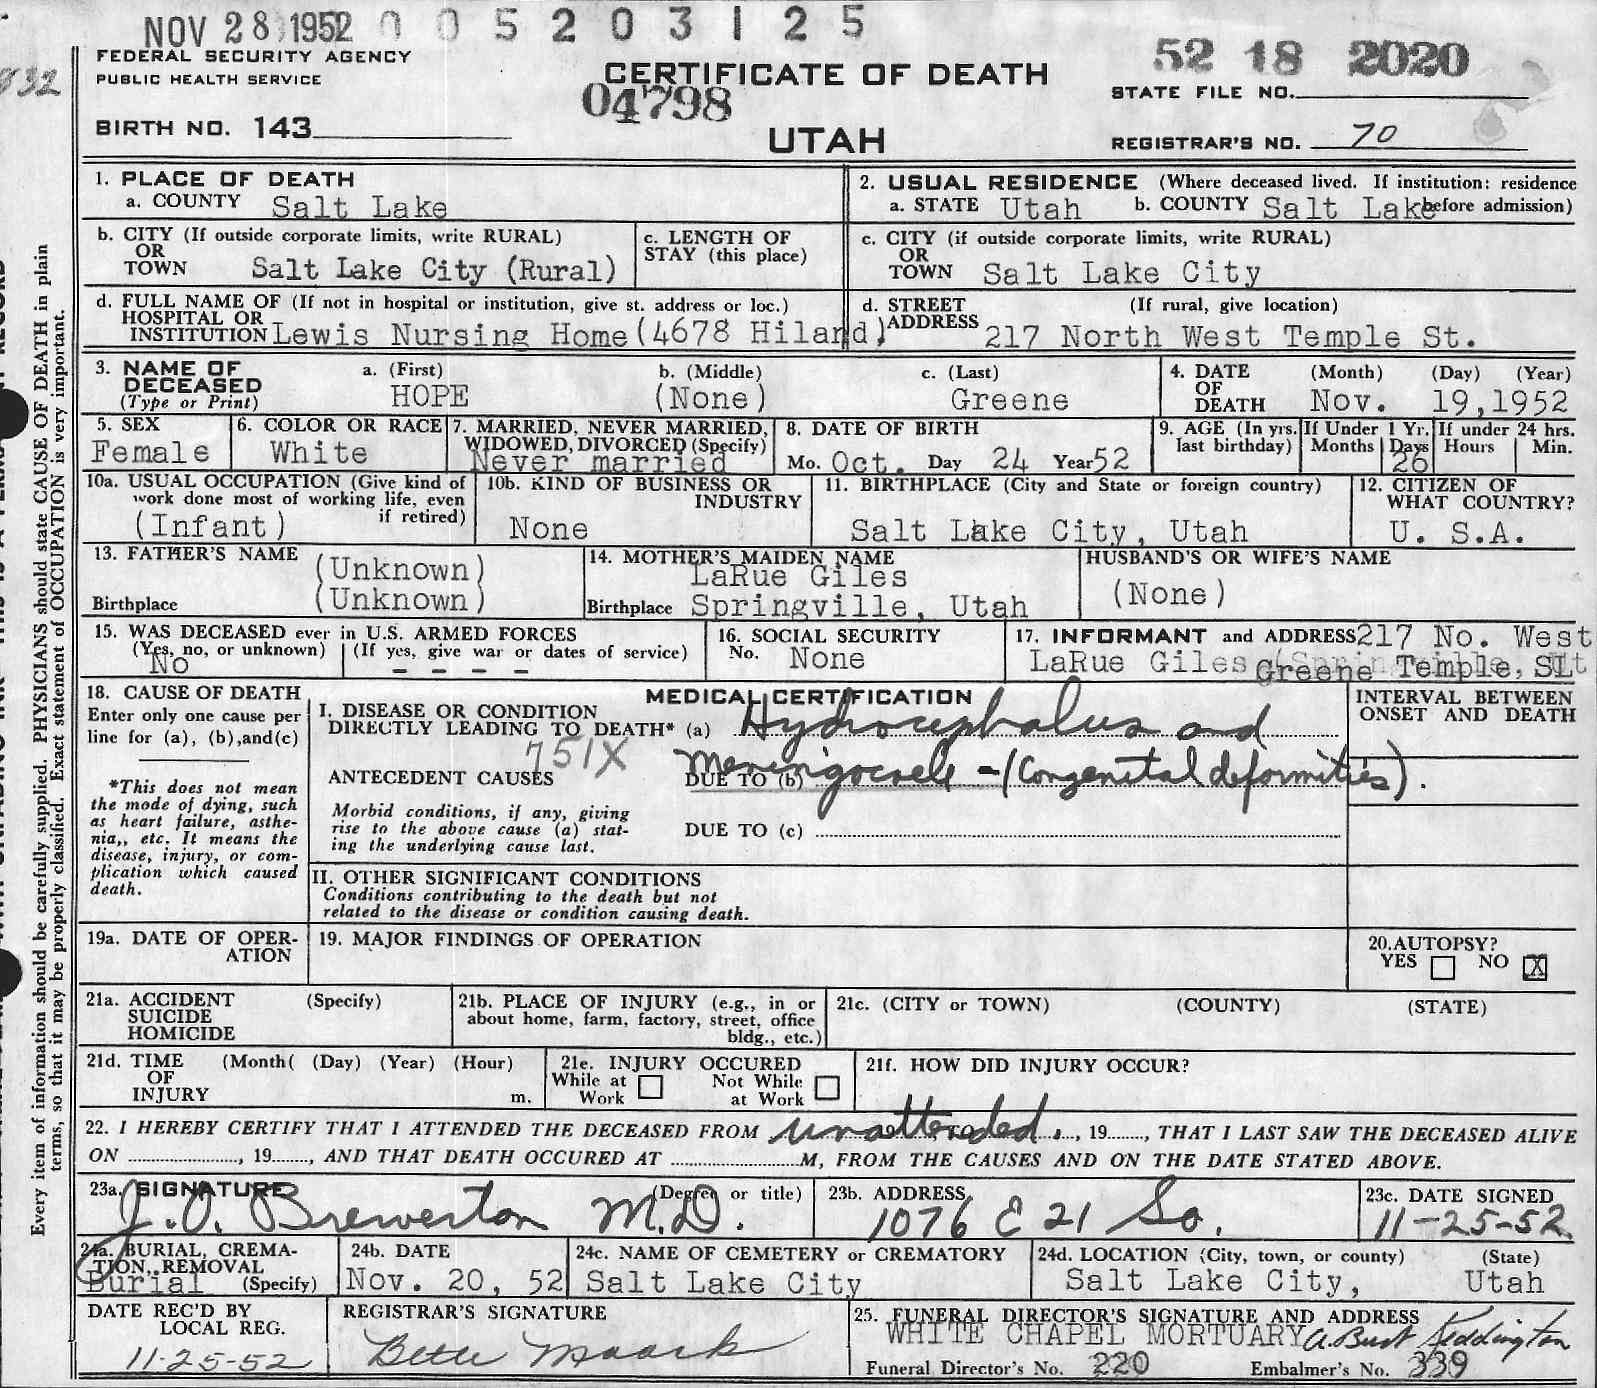 NOV 28 1952 0 0 5 2 0 3 1 2 5
FEDERAL SECURITY AGENCY
PUBLIC HEALTH SERVICE
CERTIFICATE OF DEATH
04798
52 18 2020
STATE FILE NO.
BIRTH NO. 143
UTAH
REGISTRAR'S NO. 70
1. PLACE OF DEATH
a. COUNTY Salt Lake
2. USUAL RESIDENCE (Where deceased lived. If institution: residence before admission)
a. STATE Utah b. COUNTY Salt Lake
b. CITY (If outside corporate limits, write RURAL)
OR
TOWN Salt Lake City (Rural)
c. LENGTH OF
STAY (this place)
c. CITY (if outside corporate limits, write RURAL)
OR
TOWN Salt Lake City
d. FULL NAME OF (If not in hospital or institution, give st. address or loc.)
HOSPITAL OR
INSTITUTION Lewis Nursing Home (4678 Hiland)
d. STREET (If rural, give location)
ADDRESS 217 North West Temple St.
3. NAME OF DECEASED
(Type or Print)
a. (First) b. (Middle) c. (Last)
HOPE (None) Greene
4. DATE OF DEATH (Month) (Day) (Year)
Nov. 19,1952
5. SEX
Female
6. COLOR OR RACE
White
7. MARRIED, NEVER MARRIED,
WIDOWED, DIVORCED (Specify)
Never married
8. DATE OF BIRTH
Mo. Oct. Day 24 Year 52
9. AGE (In yrs. last birthday)
If Under 1 Yr. Months Days 26
If under 24 hrs. Hours Min.
10a. USUAL OCCUPATION (Give kind of
work done most of working life, even
if retired)
(Infant)
10b. KIND OF BUSINESS OR
INDUSTRY
None
11. BIRTHPLACE (City and State or foreign country)
Salt Lake City, Utah
12. CITIZEN OF
WHAT COUNTRY?
U. S.A.
13. FATHER'S NAME (Unknown)
Birthplace (Unknown)
14. MOTHER'S MAIDEN NAME
LaRue Giles
Birthplace Springville, Utah
HUSBAND'S OR WIFE'S NAME
(None)
15. WAS DECEASED ever in U.S. ARMED FORCES
(Yes, no, or unknown) (If yes, give war or dates of service)
No - - - -
16. SOCIAL SECURITY
No. None
17. INFORMANT and ADDRESS 217 No. West
LaRue Giles Greene Temple, SL
18. CAUSE OF DEATH
Enter only one cause per
line for (a), (b),and(c)
*This does not mean
the mode of dying, such
as heart failure, asthe-
nia,, etc. It means the
disease, injury, or com-
plication which caused
death.
MEDICAL CERTIFICATION
I. DISEASE OR CONDITION
DIRECTLY LEADING TO DEATH* (a) Hydrocephalus and
751X
ANTECEDENT CAUSES DUE TO (b) Meningocoele - (Congenital deformities).
Morbid conditions, if any, giving
rise to the above cause (a) stat-
ing the underlying cause last.
DUE TO (c)
II. OTHER SIGNIFICANT CONDITIONS
Conditions contributing to the death but not
related to the disease or condition causing death.
INTERVAL BETWEEN
ONSET AND DEATH
19a. DATE OF OPER-
ATION
19. MAJOR FINDINGS OF OPERATION
20.AUTOPSY?
YES NO X
21a. ACCIDENT (Specify)
SUICIDE
HOMICIDE
21b. PLACE OF INJURY (e.g., in or
about home, farm, factory, street, office
bldg., etc.)
21c. (CITY or TOWN) (COUNTY) (STATE)
21d. TIME (Month( (Day) (Year) (Hour)
OF
INJURY m.
21e. INJURY OCCURED
While at Work Not While at Work
21f. HOW DID INJURY OCCUR?
22. I HEREBY CERTIFY THAT I ATTENDED THE DECEASED FROM unattended., 19......., THAT I LAST SAW THE DECEASED ALIVE
ON ...................., 19......., AND THAT DEATH OCCURED AT .......................M, FROM THE CAUSES AND ON THE DATE STATED ABOVE.
23a. SIGNATURE (Degree or title)
J.O. Brewerton M.D.
23b. ADDRESS
1076 E 21 So.
23c. DATE SIGNED
11-25-52
24a. BURIAL, CREMA-
TION, REMOVAL
Burial (Specify)
24b. DATE
Nov. 20, 52
24c. NAME OF CEMETERY or CREMATORY
Salt Lake City
24d. LOCATION (City, town, or county) (State)
Salt Lake City, Utah
DATE REC'D BY
LOCAL REG.
11-25-52
REGISTRAR'S SIGNATURE
25. FUNERAL DIRECTOR'S SIGNATURE AND ADDRESS
WHITE CHAPEL MORTUARY A. Burt Keddington
Funeral Director's No. 220 Embalmer's No. 339
Every item of information should be carefully supplied. PHYSICIANS should state CAUSE OF DEATH in plain
terms, so that it may be properly classified. Exact statement of OCCUPATION is very important.